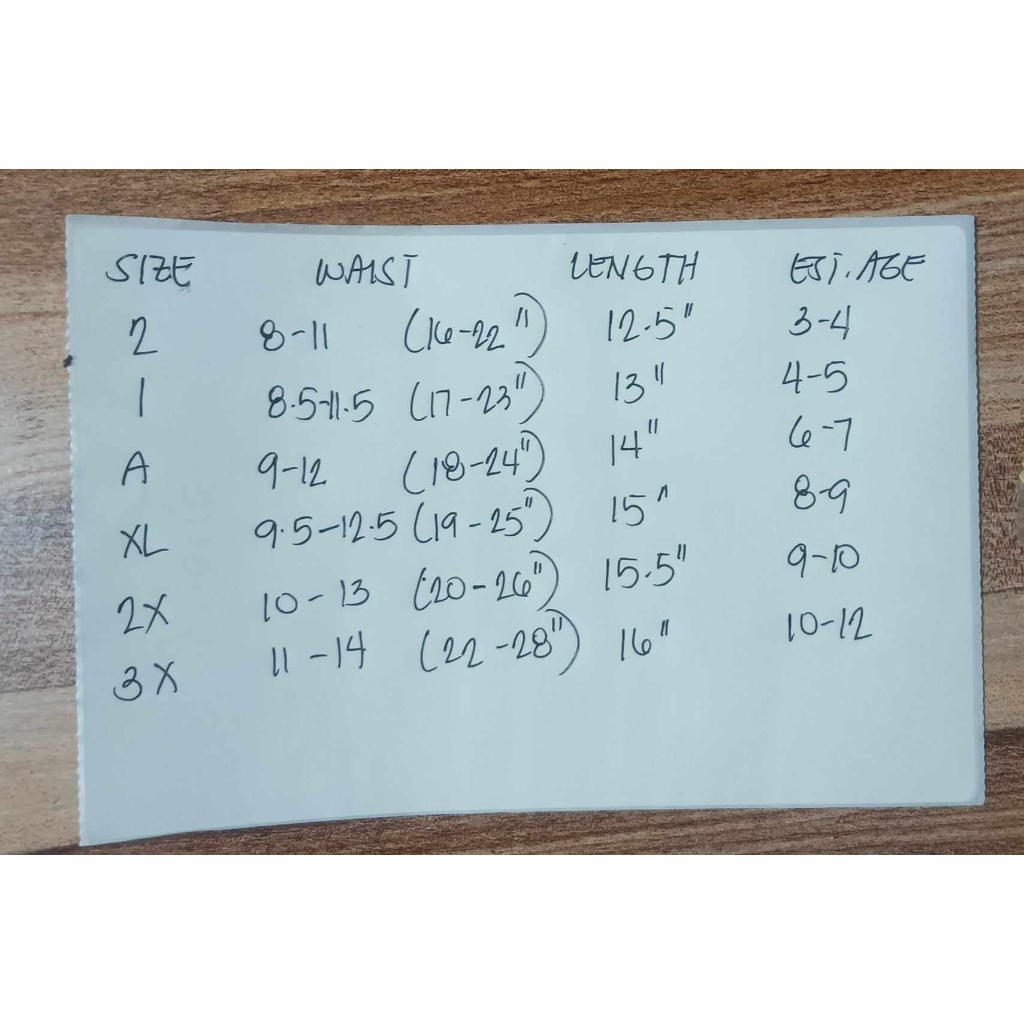 SIZE WAIST LENGTH EST. AGE
2 8-11 (16-22") 12.5" 3-4
1 8.5-11.5 (17-23") 13" 4-5
A 9-12 (18-24") 14" 6-7
XL 9.5-12.5 (19-25") 15" 8-9
2X 10-13 (20-26") 15.5" 9-10
3X 11-14 (22-28") 16" 10-12